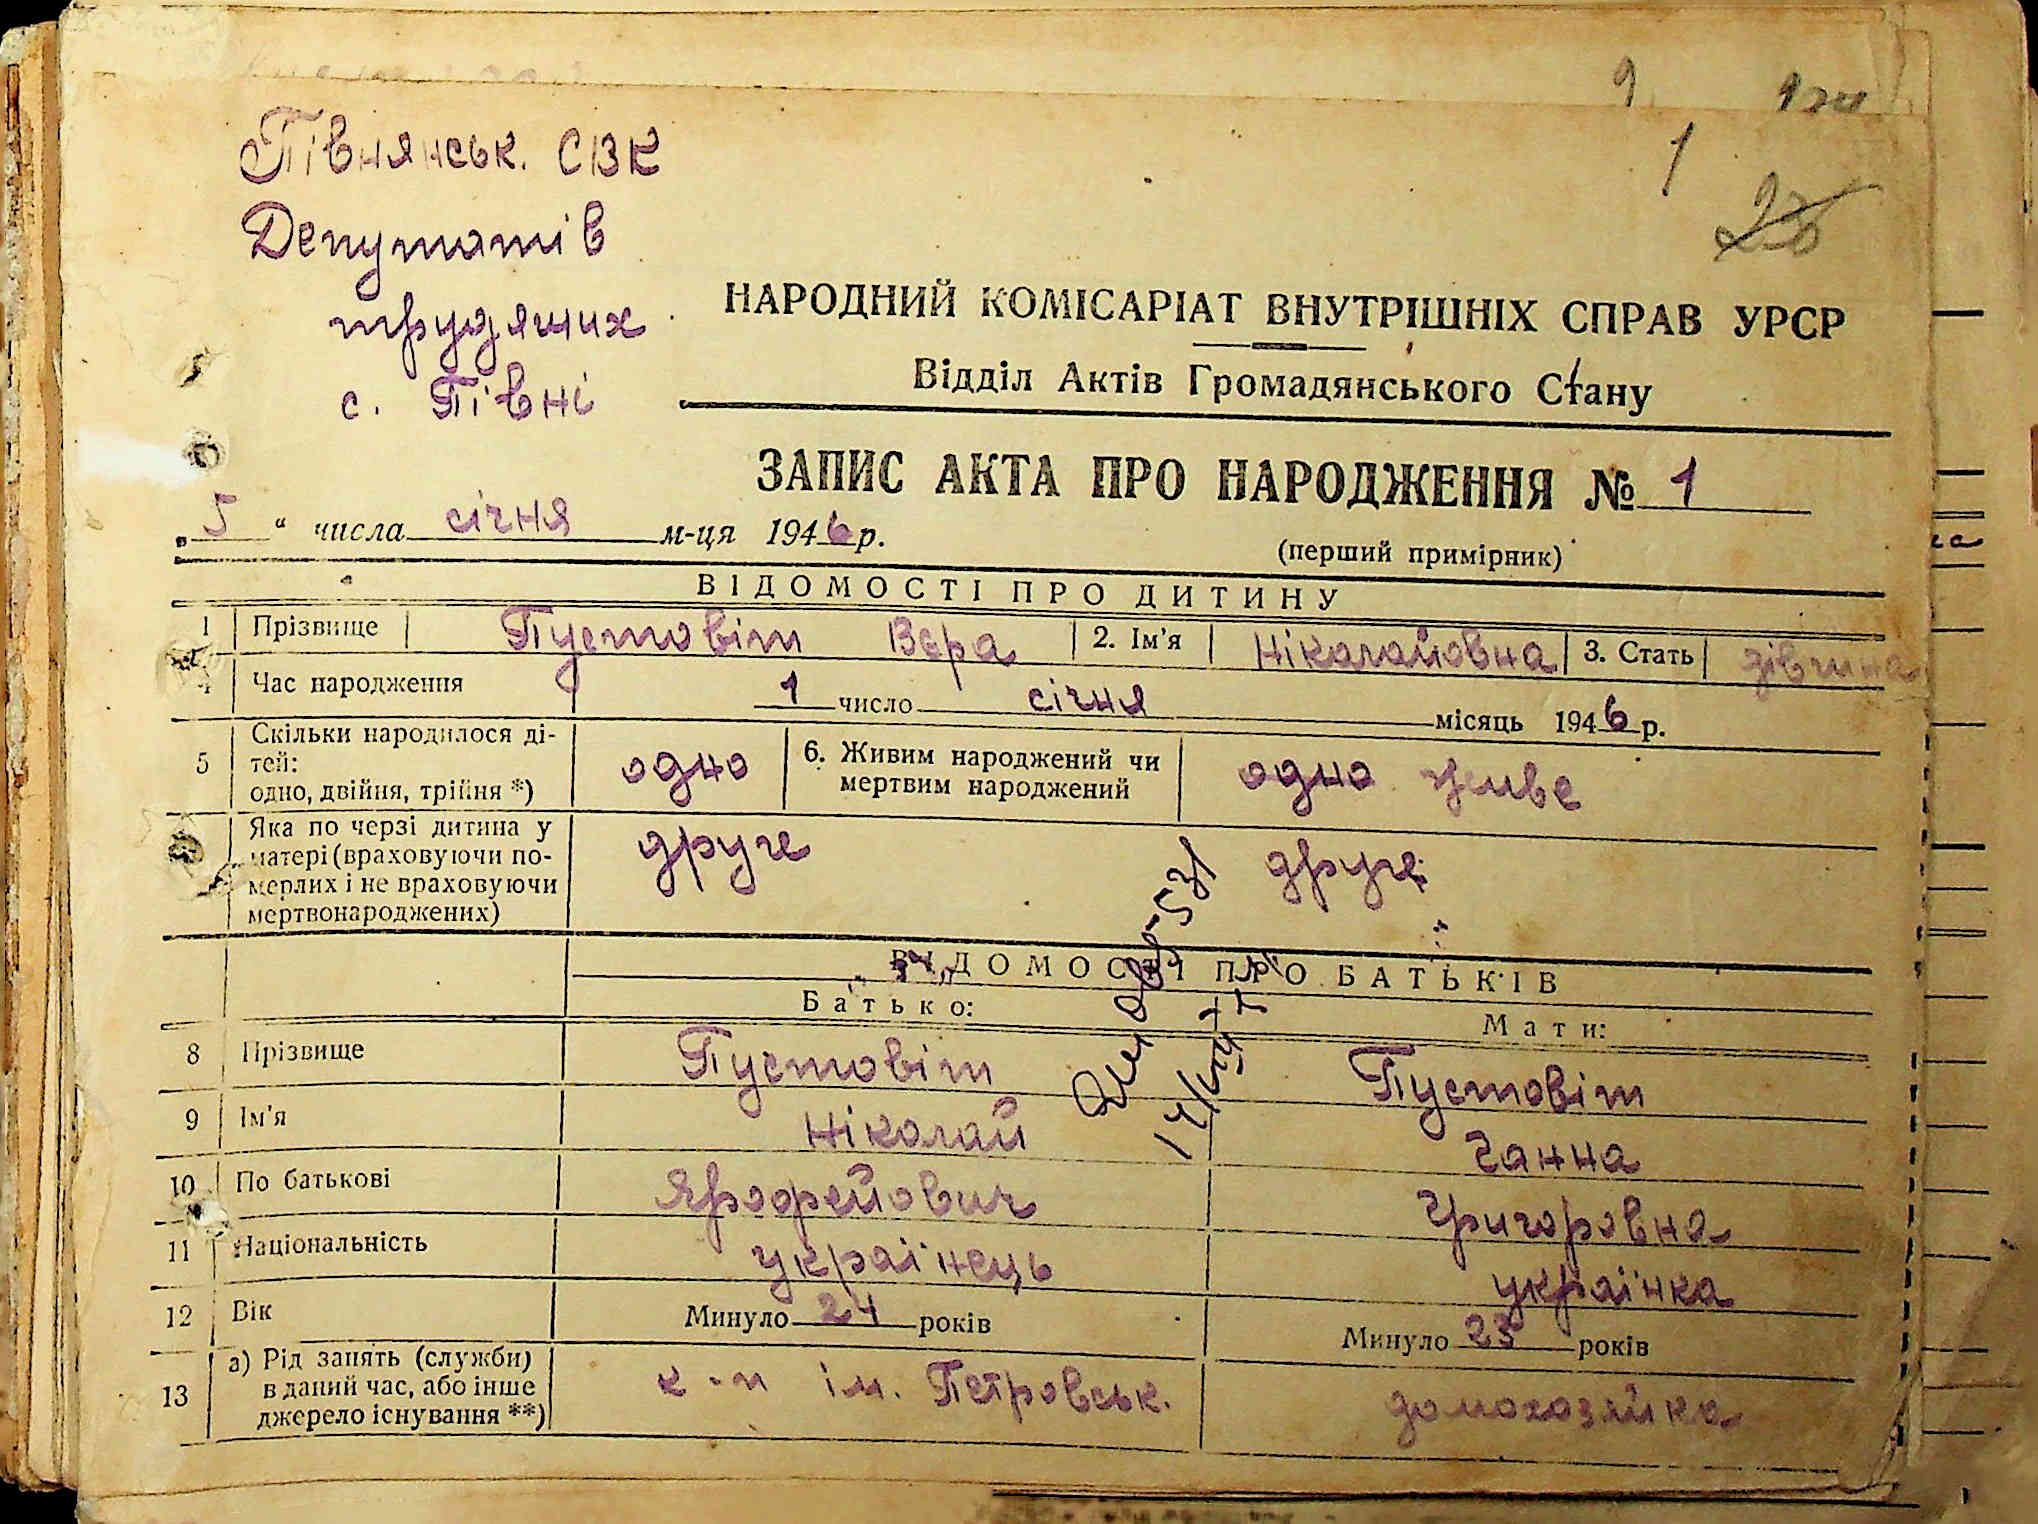 9
1
26
Півнянськ. СВК
Депутатів
трудящих
с. Півні
НАРОДНИЙ КОМІСАРІАТ ВНУТРІШНІХ СПРАВ УРСР
Відділ Актів Громадянського Стану
ЗАПИС АКТА ПРО НАРОДЖЕННЯ № 1
„5“ числа січня м-ця 1946 р.
(перший примірник)
ВІДОМОСТІ ПРО ДИТИНУ
1 Прізвище Пустовіт Вєра 2. Ім'я Ніколайовна 3. Стать дівчина
4 Час народження 1 число січня місяць 1946 р.
5 Скільки народилося ді-
тей:
одно, двійня, трійня *) одно 6. Живим народжений чи
мертвим народжений одно живе
Яка по черзі дитина у
матері (враховуючи по-
мерлих і не враховуючи
мертвонароджених) друге друге
ВІДОМОСТІ ПРО БАТЬКІВ
Батько: Мати:
8 Прізвище Пустовіт Пустовіт
9 Ім'я Ніколай Ганна
10 По батькові Ярофейович Григоровна
11 Національність українець українка
12 Вік Минуло 24 років Минуло 23 років
13 а) Рід занять (служби)
в даний час, або інше
джерело існування **) к-п ім. Петровськ. домохозяйка